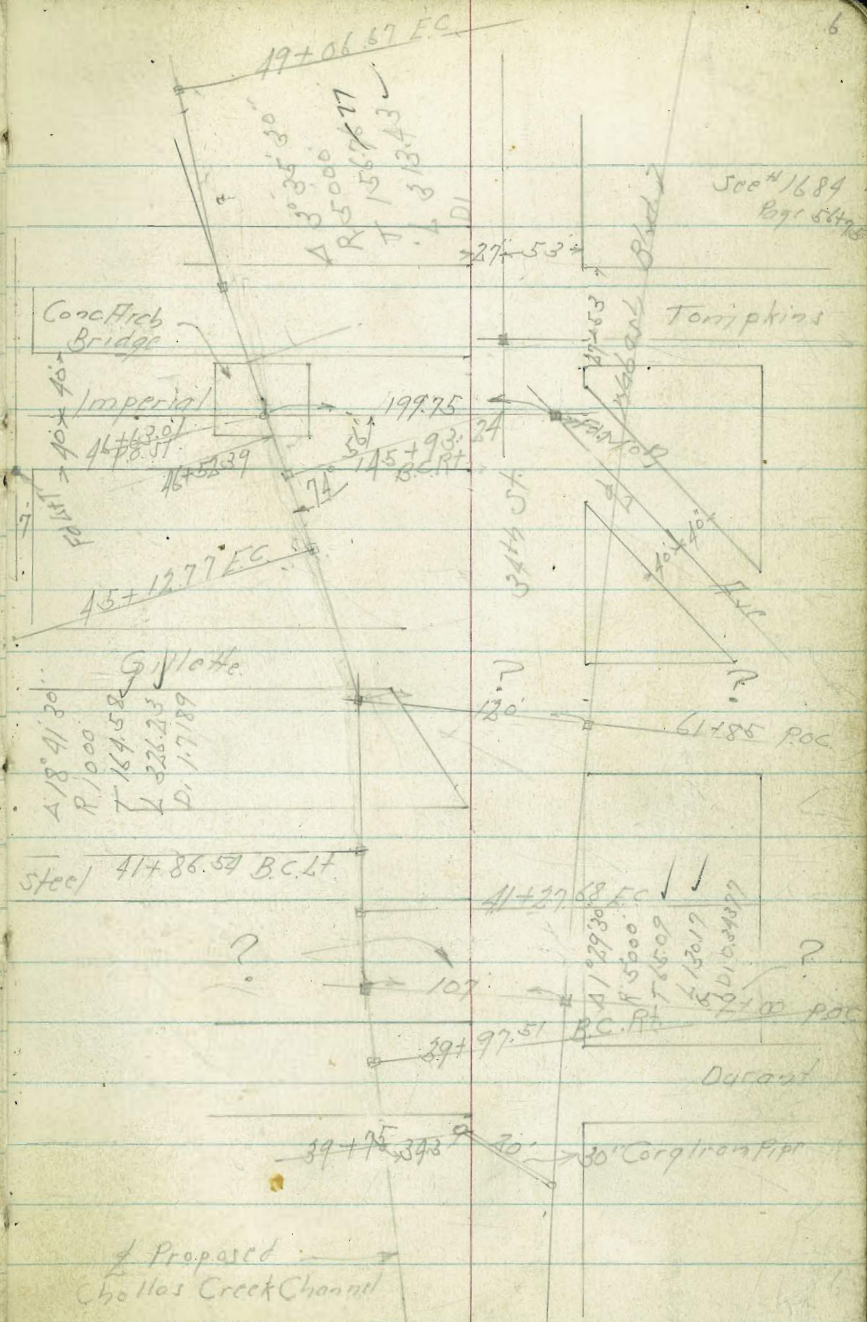 6
49+06.67 E.C.
Δ 3°35'30"
R 5000
T 156.77
L 313.43
D1
See # 1684
Page 56+95
27-53
27+53
Wabash Blvd
Conc Arch
Bridge
Tompkins
Imperial
199.75
46+63.01
P.O.S.T
46+56.39
56'
74°
45+93.24
B.C. Rt
40' 40'
34th St.
40' 40'
45+12.77 E.C.
Gillette
Δ 18°41'30"
R 1000
T 164.58
L 326.23
D1 1.7189
120'
61+85 P.O.C.
Steel
41+86.54 B.C. Lt.
41+27.68 E.C.
Δ 1°29'30"
R 5000
T 65.09
L 130.17
D1 0.34377
?
?
107
59+00 P.O.C.
39+97.51 B.C. Rt
Durant
39+75
393
70'
30" Corg Iron Pipe
₵ Proposed
Chollas Creek Channel